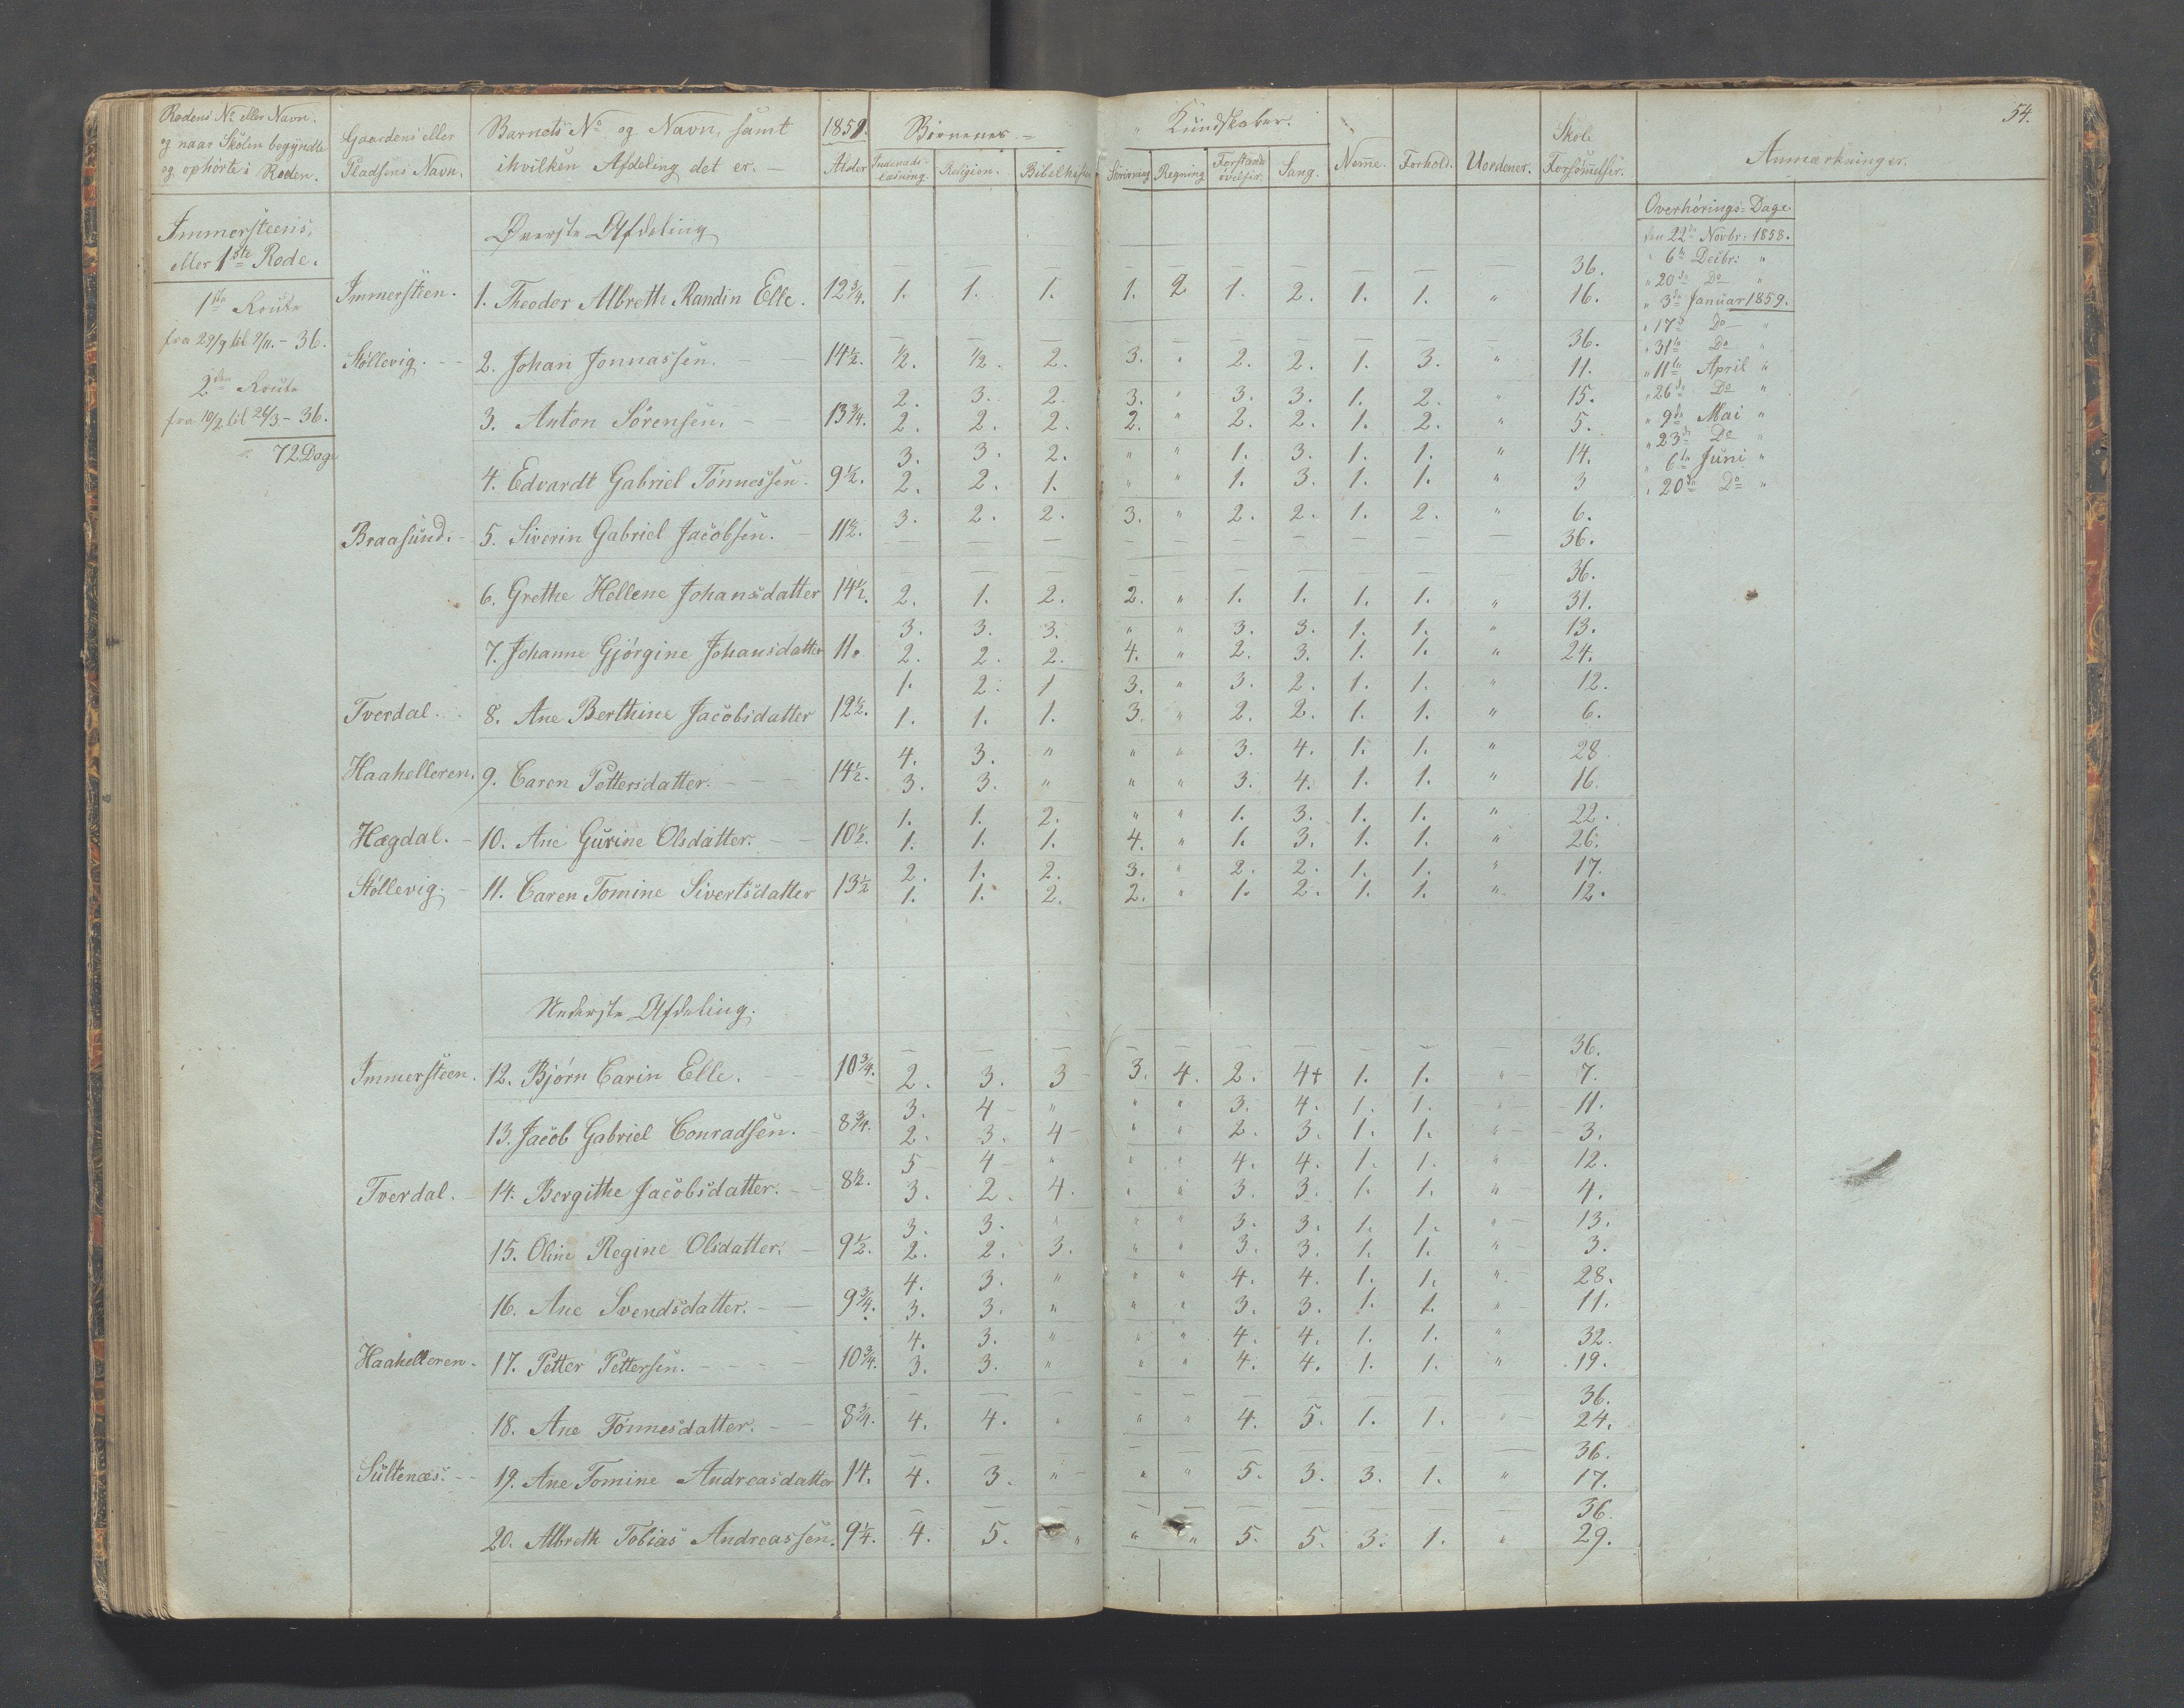 54.
Rodens No. eller Navn.
og naar Skolen begyndte
og ophørte i Roden.
Gaardens eller
Pladsens Navn.
Barnets No. og Navn, samt
ihvilken Afdeling det er. —
1859.
Alder
Børnenes —
" Kundskaber.
Indenads-
læsning.
Religion.
Bibelhist.
Skrivning
Regning
Forstands
øvelser.
Sang.
Nemme.
Forhold.
Uordener.
Skole
Forsømmelser.
Anmærkninger.
Immersteens,
eller 1ste Rode.
1ste Route
fra 29/9 til 9/11. – 36.
2den Route
fra 10/2 til 26/3 – 36.
72 Dage
Overhørings-Dage.
den 22de Novbr. 1858.
" 6te Decbr. "
" 20de Do "
" 3de Januar 1859.
" 17de Do "
" 31te Do "
" 11te April "
" 26de Do "
" 9de Mai "
" 23de Do "
" 6te Juni "
" 20de Do "
Øverste Afdeling
— — — — — — — — — — 36.
Immersteen. 1. Theodor Albreth Randin Elle. 12 3/4. 1. 1. 1. 1. 2 1. 2. 1. 1. " 16.
— — — — — — — — — — 36.
Støllevig. - - 2. Johan Jonnassen. 14 1/2. 1/2. 1/2. 2. 3. " 2. 2. 1. 3. " 11.
2. 3. 2. 3. " 3. 3. 1. 2. " 15.
3. Anton Sørensen. - 13 3/4. 2. 2. 2. 2. " 2. 2. 1. 2. " 5.
3. 3. 2. " " 1. 3. 1. 1. " 14.
4. Edvardt Gabriel Tønnessen. 9 1/2. 2. 2. 1. " " 1. 3. 1. 1. " 3
3. 2. 2. 3. " 2. 2. 1. 2. " 6.
Braasund. - 5. Siverin Gabriel Jacobsen. - 11 1/2. — — — — — — — — — — 36.
— — — — — — — — — — 36.
6. Grethe Hellene Johansdatter 14 1/2. 2. 1. 2. 2. " 1. 1. 1. 1. " 31.
3. 3. 3. " " 3. 3. 1. 1. " 13.
7. Johanne Gjørgine Johansdatter 11. 2. 2. 2. 4. " 2. 3. 1. 1. " 24.
1. 2. 1 3. " 3. 2. 1. 1. " 12.
Tverdal. 8. Ane Berthine Jacobsdatter 12 1/2. 1. 1. 1. 3. " 2. 2. 1. 1. " 6.
4. 3. " " " 3. 4. 1. 1. " 28
Haahelleren. 9. Caren Pettersdatter. - - - 14 1/2. 3. 3. " " " 3. 4. 1. 1. " 16.
1. 1. 2. " " 1. 3. 1. 1. " 22.
Hægdal. - 10. Ane Gurine Olsdatter. - - 10 1/2. 1. 1. 1. 4. " 1. 3. 1. 1. " 26.
2. 1. 2. 3. " 2. 2. 1. 1. " 17.
Støllevig. - 11. Caren Tomine Sivertsdatter 13 1/2 1. 1. 2. 2. " 1. 2. 1. 1. " 12.
Nederste Afdeling.
— — — — — — — — — — 36.
Immersteen. 12. Bjørn Carin Elle. - 10 3/4. 2. 3. 3 3. 4. 2. 4+ 1. 1. " 7.
3. 4 " " " 3. 4. 1. 1. " 11.
13. Jacob Gabriel Conradsen. - 8 3/4. 2. 3. 4 " " 2. 3. 1. 1. " 3.
5 4 " " " 4. 4. 1. 1. " 12.
Tverdal. - 14. Bergithe Jacobsdatter. - 8 1/2. 3. 2. 4. " " 3. 3. 1. 1. " 4.
3. 3. " " " 3. 3. 1. 1. " 13.
15. Oline Regine Olsdatter. - 9 1/2. 2. 2. 3. " " 3. 3. 1. 1. " 3.
4. 3. " " " 4. 4. 1. 1. " 28.
16. Ane Svendsdatter. - - 9 3/4. 3. 3. " " " 3. 3. 1. 1. " 11.
4. 3. " " " 4. 4. 1. 1. " 32.
Haahelleren. 17. Petter Pettersen. - - - 10 3/4. 3. 3. " " " 4. 4. 1. 1. " 19.
— — — — — — — — — — 36.
18. Ane Tønnesdatter. - - 8 3/4. 4. 4. " " " 4. 5. 1. 1. " 24.
— — — — — — — — — — 36.
Sültenæs. - - 19. Ane Tomine Andreasdatter 14. 4. 3. " " " 5. 3. 3. 1. " 17.
— — — — — — — — — — 36.
20. Albreth Tobias Andreassen. 9 1/4. 4. 5. " " " 5. 5. 3. 1. " 29.